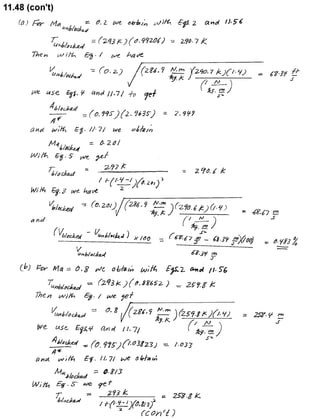 11.48 (con't)
(a) For Ma unblocked = 0.2 we obtain with Eqs 2 and 11.56
T unblocked = (293 K)(0.99206) = 290.7 K
Then with Eq. 1 we have
V unblocked = (0.2) √(286.9 N.m/kg.K)(290.7 K)(1.4) / (1 N/kg.m/s²) = 68.34 m/s
We use Eqs. 4 and 11.71 to get
A blocked / A* = (0.995)(2.9635) = 2.949
and with Eq. 11.71 we obtain
Ma blocked = 0.201
With Eq. 5 we get
T blocked = 293 K / 1 + (1.4-1/2)(0.201)² = 290.6 K
With Eq. 3 we have
V blocked = (0.201) √(286.9 N.m/kg.K)(290.6 K)(1.4) / (1 N/kg.m/s²) = 68.67 m/s
and
(V blocked - V unblocked) x 100 / V unblocked = (68.67 m/s - 68.34 m/s)(100) / 68.34 m/s = 0.483 %
(b) For Ma = 0.8 we obtain with Eqs 2 and 11.56
T unblocked = (293 K)(0.88652) = 259.8 K
Then with Eq. 1 we get
V unblocked = 0.8 √(286.9 N.m/kg.K)(259.8 K)(1.4) / (1 N/kg.m/s²) = 258.4 m/s
We use Eqs 4 and 11.71
A blocked / A* = (0.995)(1.03823) = 1.033
and with Eq. 11.71 we obtain
Ma blocked = 0.813
With Eq. 5 we get
T blocked = 293 K / 1 + (1.4-1/2)(0.813)² = 258.8 K
(con't)